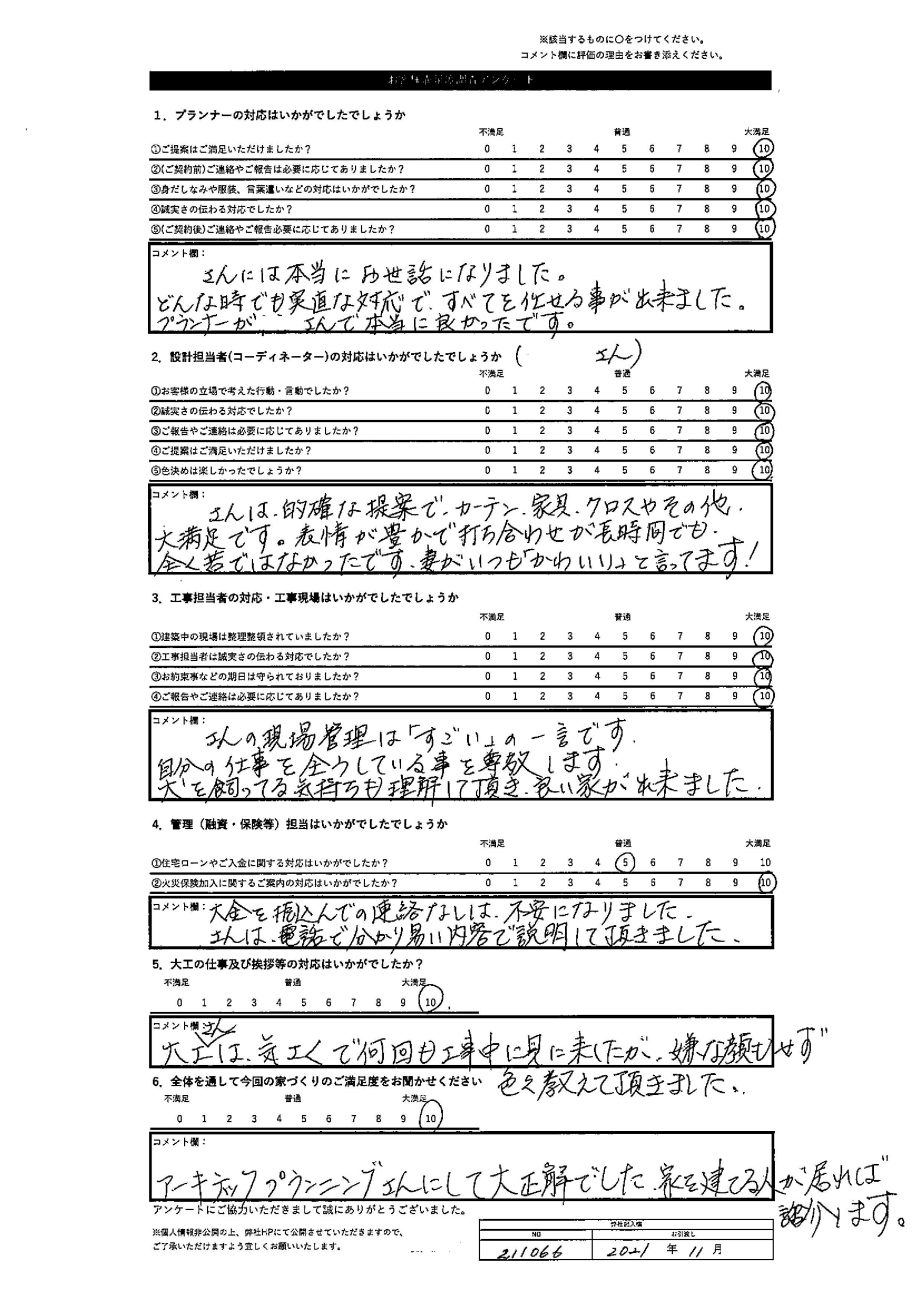 ※該当するものに〇をつけてください。
コメント欄に評価の理由をお書き添えください。
1．プランナーの対応はいかがでしたでしょうか
不満足 普通 大満足
①ご提案はご満足いただけましたか？ 0 1 2 3 4 5 6 7 8 9 10
②(ご契約前)ご連絡やご報告は必要に応じてありましたか？ 0 1 2 3 4 5 6 7 8 9 10
③身だしなみや服装、言葉遣いなどの対応はいかがでしたか？ 0 1 2 3 4 5 6 7 8 9 10
④誠実さの伝わる対応でしたか？ 0 1 2 3 4 5 6 7 8 9 10
⑤(ご契約後)ご連絡やご報告必要に応じてありましたか？ 0 1 2 3 4 5 6 7 8 9 10
コメント欄：
さんには本当にお世話になりました。
どんな時でも実直な対応で、すべてを任せる事が出来ました。
プランナーが さんで本当に良かったです。
2．設計担当者(コーディネーター)の対応はいかがでしたでしょうか ( さん)
不満足 普通 大満足
①お客様の立場で考えた行動・言動でしたか？ 0 1 2 3 4 5 6 7 8 9 10
②誠実さの伝わる対応でしたか？ 0 1 2 3 4 5 6 7 8 9 10
③ご報告やご連絡は必要に応じてありましたか？ 0 1 2 3 4 5 6 7 8 9 10
④ご提案はご満足いただけましたか？ 0 1 2 3 4 5 6 7 8 9 10
⑤色決めは楽しかったでしょうか？ 0 1 2 3 4 5 6 7 8 9 10
コメント欄：
さんは、的確な提案で、カーテン、家具、クロスやその他、
大満足です。表情が豊かで打ち合わせが長時間でも、
全く苦ではなかったです、妻がいつも「かわいい」と言ってます！
3．工事担当者の対応・工事現場はいかがでしたでしょうか
不満足 普通 大満足
①建築中の現場は整理整頓されていましたか？ 0 1 2 3 4 5 6 7 8 9 10
②工事担当者は誠実さの伝わる対応でしたか？ 0 1 2 3 4 5 6 7 8 9 10
③お約束事などの期日は守られておりましたか？ 0 1 2 3 4 5 6 7 8 9 10
④ご報告やご連絡は必要に応じてありましたか？ 0 1 2 3 4 5 6 7 8 9 10
コメント欄：
さんの現場管理は「すごい」の一言です．
自分の仕事を全うしている事を尊敬します。
犬を飼ってる気持ちも理解して頂き、良い家が出来ました．
4．管理（融資・保険等）担当はいかがでしたでしょうか
不満足 普通 大満足
①住宅ローンやご入金に関する対応はいかがでしたか？ 0 1 2 3 4 5 6 7 8 9 10
②火災保険加入に関するご案内の対応はいかがでしたか？ 0 1 2 3 4 5 6 7 8 9 10
コメント欄： 大金を振込んでの連絡なしは、不安になりました．
さんは、電話で分かり易い内容で説明して頂きました．
5．大工の仕事及び挨拶等の対応はいかがでしたか？
不満足 普通 大満足
0 1 2 3 4 5 6 7 8 9 10
コメント欄：
大工さんは、気さくで何回も工事中に見に来したが、嫌な顔もせず
色々教えて頂きました．
6．全体を通して今回の家づくりのご満足度をお聞かせください
不満足 普通 大満足
0 1 2 3 4 5 6 7 8 9 10
コメント欄：
アーキテックプランニングさんにして大正解でした．家を建てる人が居れば
紹介します。
アンケートにご協力いただきまして誠にありがとうございました。
※個人情報非公開の上、弊社HPにて公開させていただきますので、
ご了承いただけますよう宜しくお願いいたします。
弊社記入欄
NO お引渡し
211066 2021 年 11 月